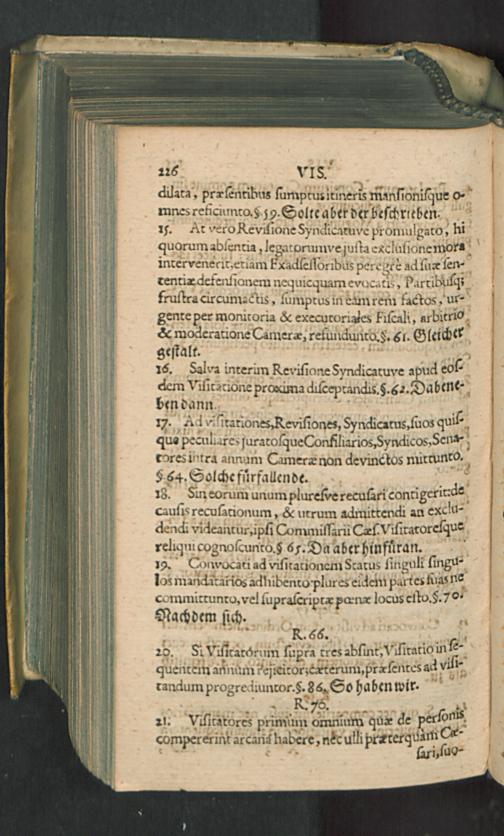 226 VIS.
dilata, præsentibus sumptus itineris mansionisque o-
mnes reficiunto. §. 59. Solte aber der beschrieben.
15. At vero Revisione Syndicatuve promulgato, hi
quorum absentia, legatorumve justa exclusione mora
intervenerit, etiam Exadsessoribus peregrè ad suæ sen-
tentiæ defensionem nequicquam evocatis, Partibusq;
frustra circumactis, sumptus in eam rem factos, ur-
gente per monitoria & executoriales Fiscali, arbitrio
& moderatione Cameræ, refundunto. §. 61. Gleicher
gestalt.
16. Salva interim Revisione Syndicatuve apud eos-
dem Visitatione proxima disceptandis. §. 62. Da bene-
ben dann.
17. Ad visitationes, Revisiones, Syndicatus, suos quis-
que peculiares juratosque Consiliarios, Syndicos, Sena-
tores intra annum Cameræ non devinctos mittunto.
§ 64. Solche fürfallende.
18. Sin eorum unum pluresve recusari contigerit: de
causis recusationum, & utrum admittendi an exclu-
dendi videantur, ipsi Commissarii Cæs. Visitatoresque
reliqui cognoscunto. § 65. Da aber hinfüran.
19. Convocati ad visitationem Status singuli singu-
los mandatarios adhibento: plures eidem partes suas ne
committunto, vel suprascriptæ pœnæ locus esto. §. 70.
Nach dem sich.
R. 66.
20. Si Visitatorum supra tres absint, Visitatio in se-
quentem annum rejicitor, cæterum, præsentes ad visi-
tandum progrediuntor. §. 86. So haben wir.
R. 70.
21. Visitatores primùm omnium quæ de personis
compererint arcana habere, nec ulli præterquàm Cæ-
sari, suo-